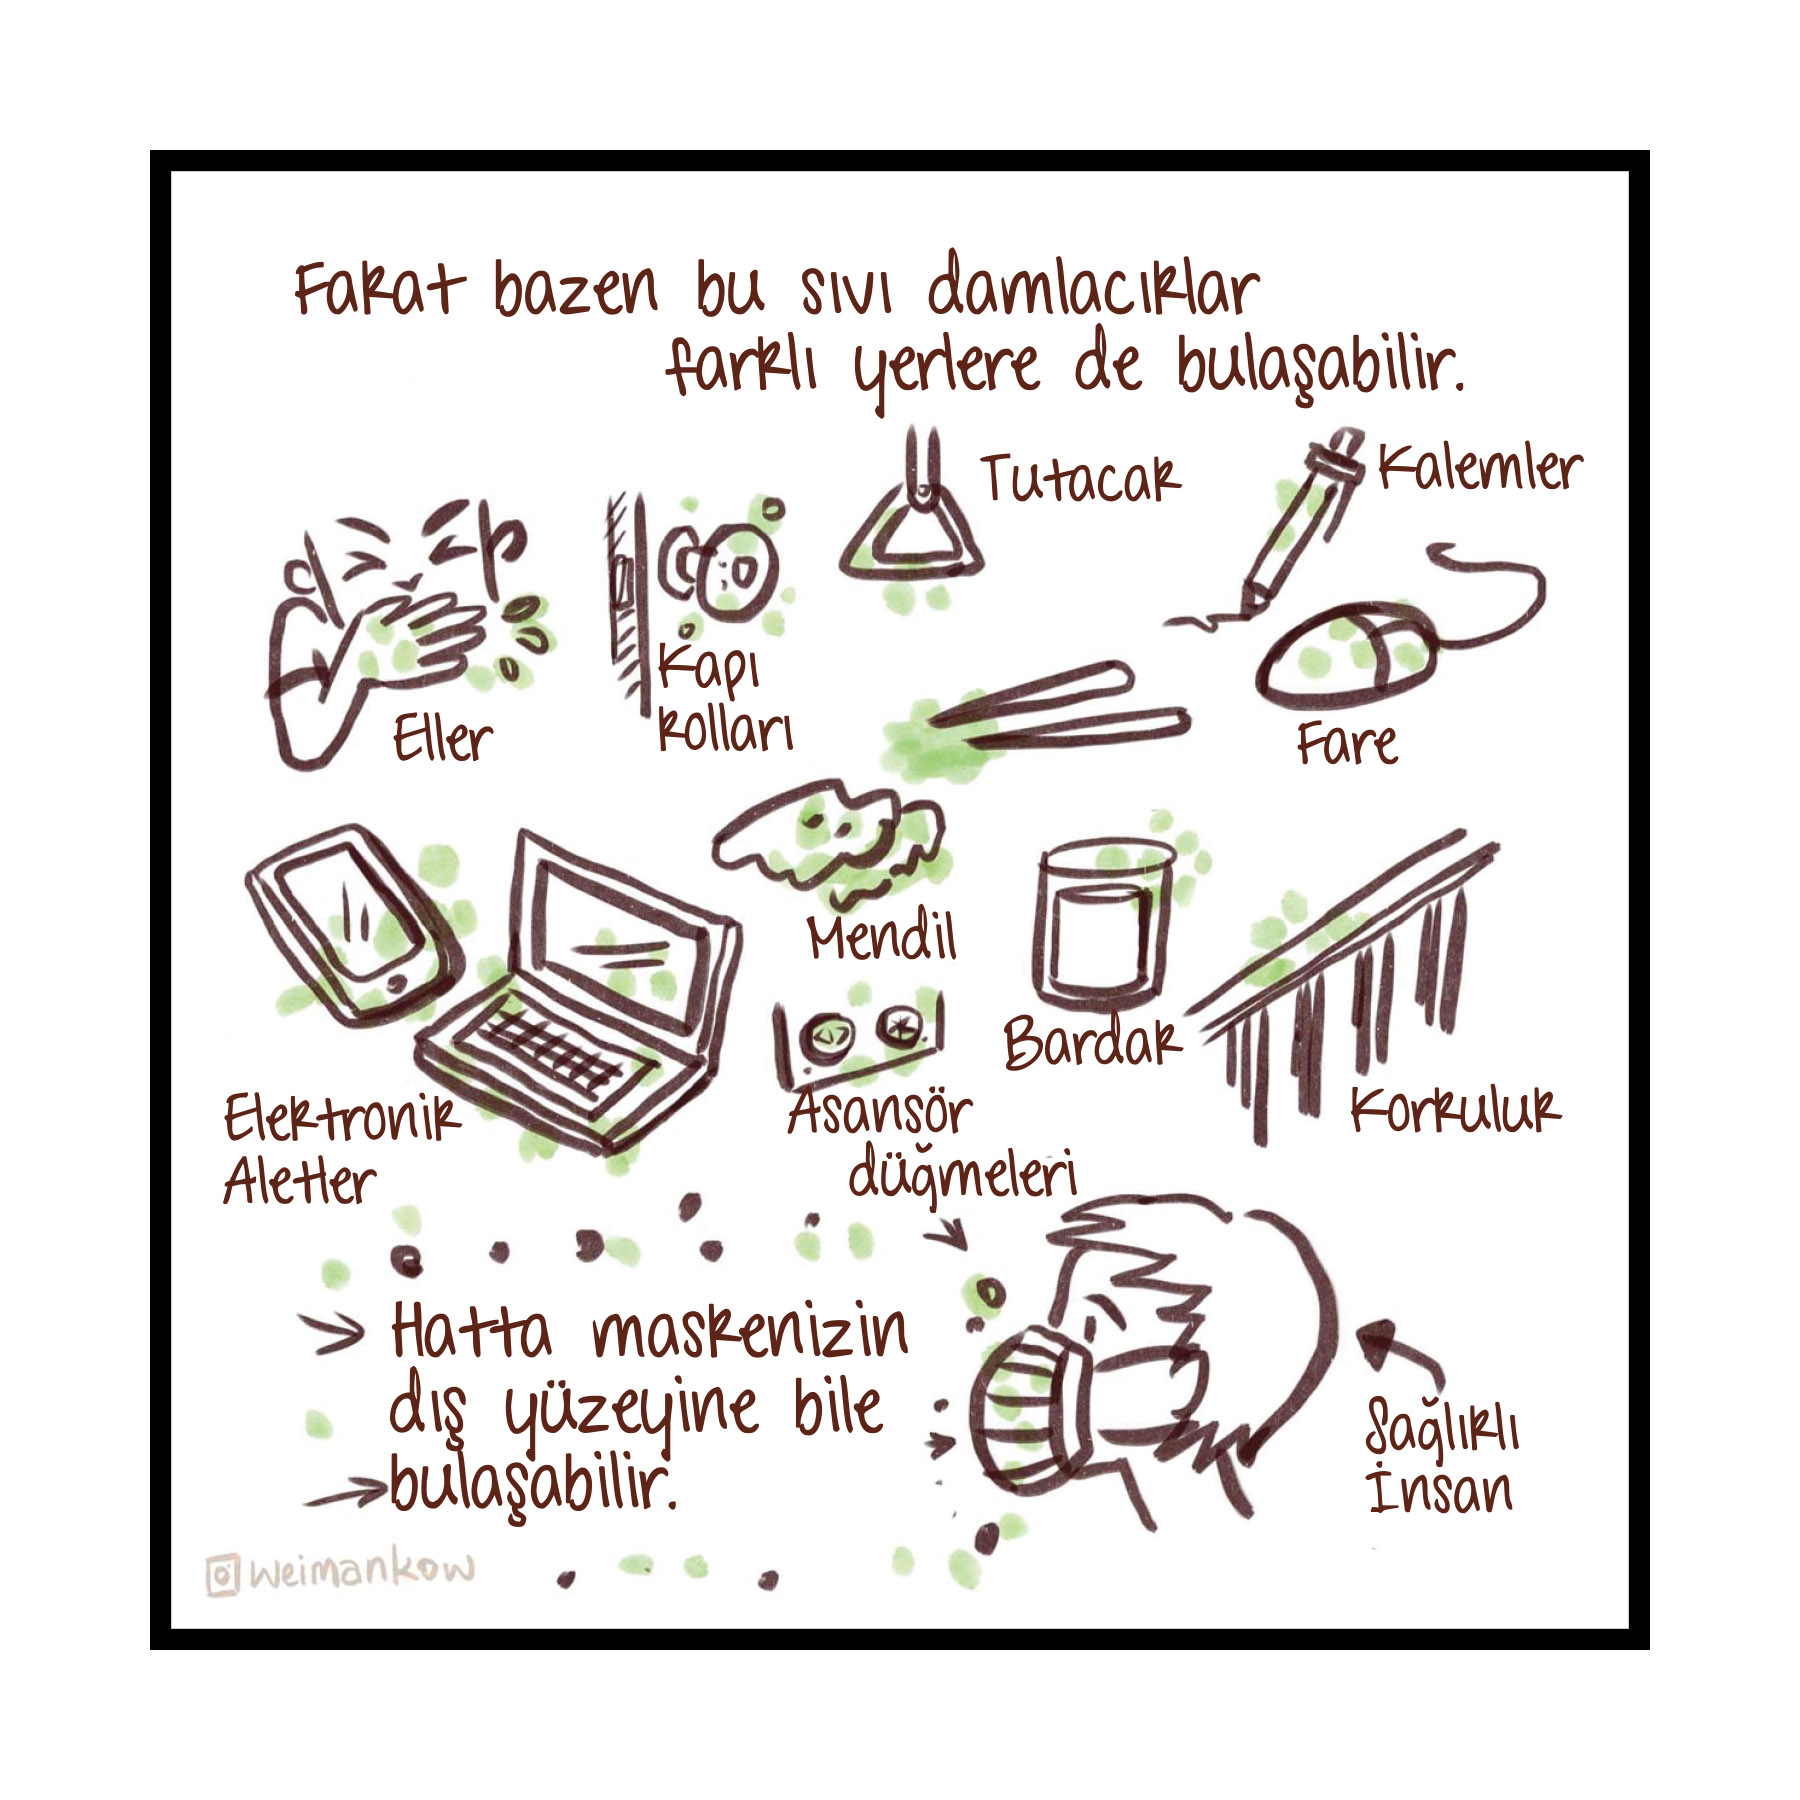 Fakat bazen bu sıvı damlacıklar
farklı yerlere de bulaşabilir.
Tutacak
Kalemler
Eller
Kapı
kolları
Fare
Mendil
Bardak
Korkuluk
Elektronik
Aletler
Asansör
düğmeleri
Hatta maskenizin
dış yüzeyine bile
bulaşabilir.
Sağlıklı
İnsan
weimankow